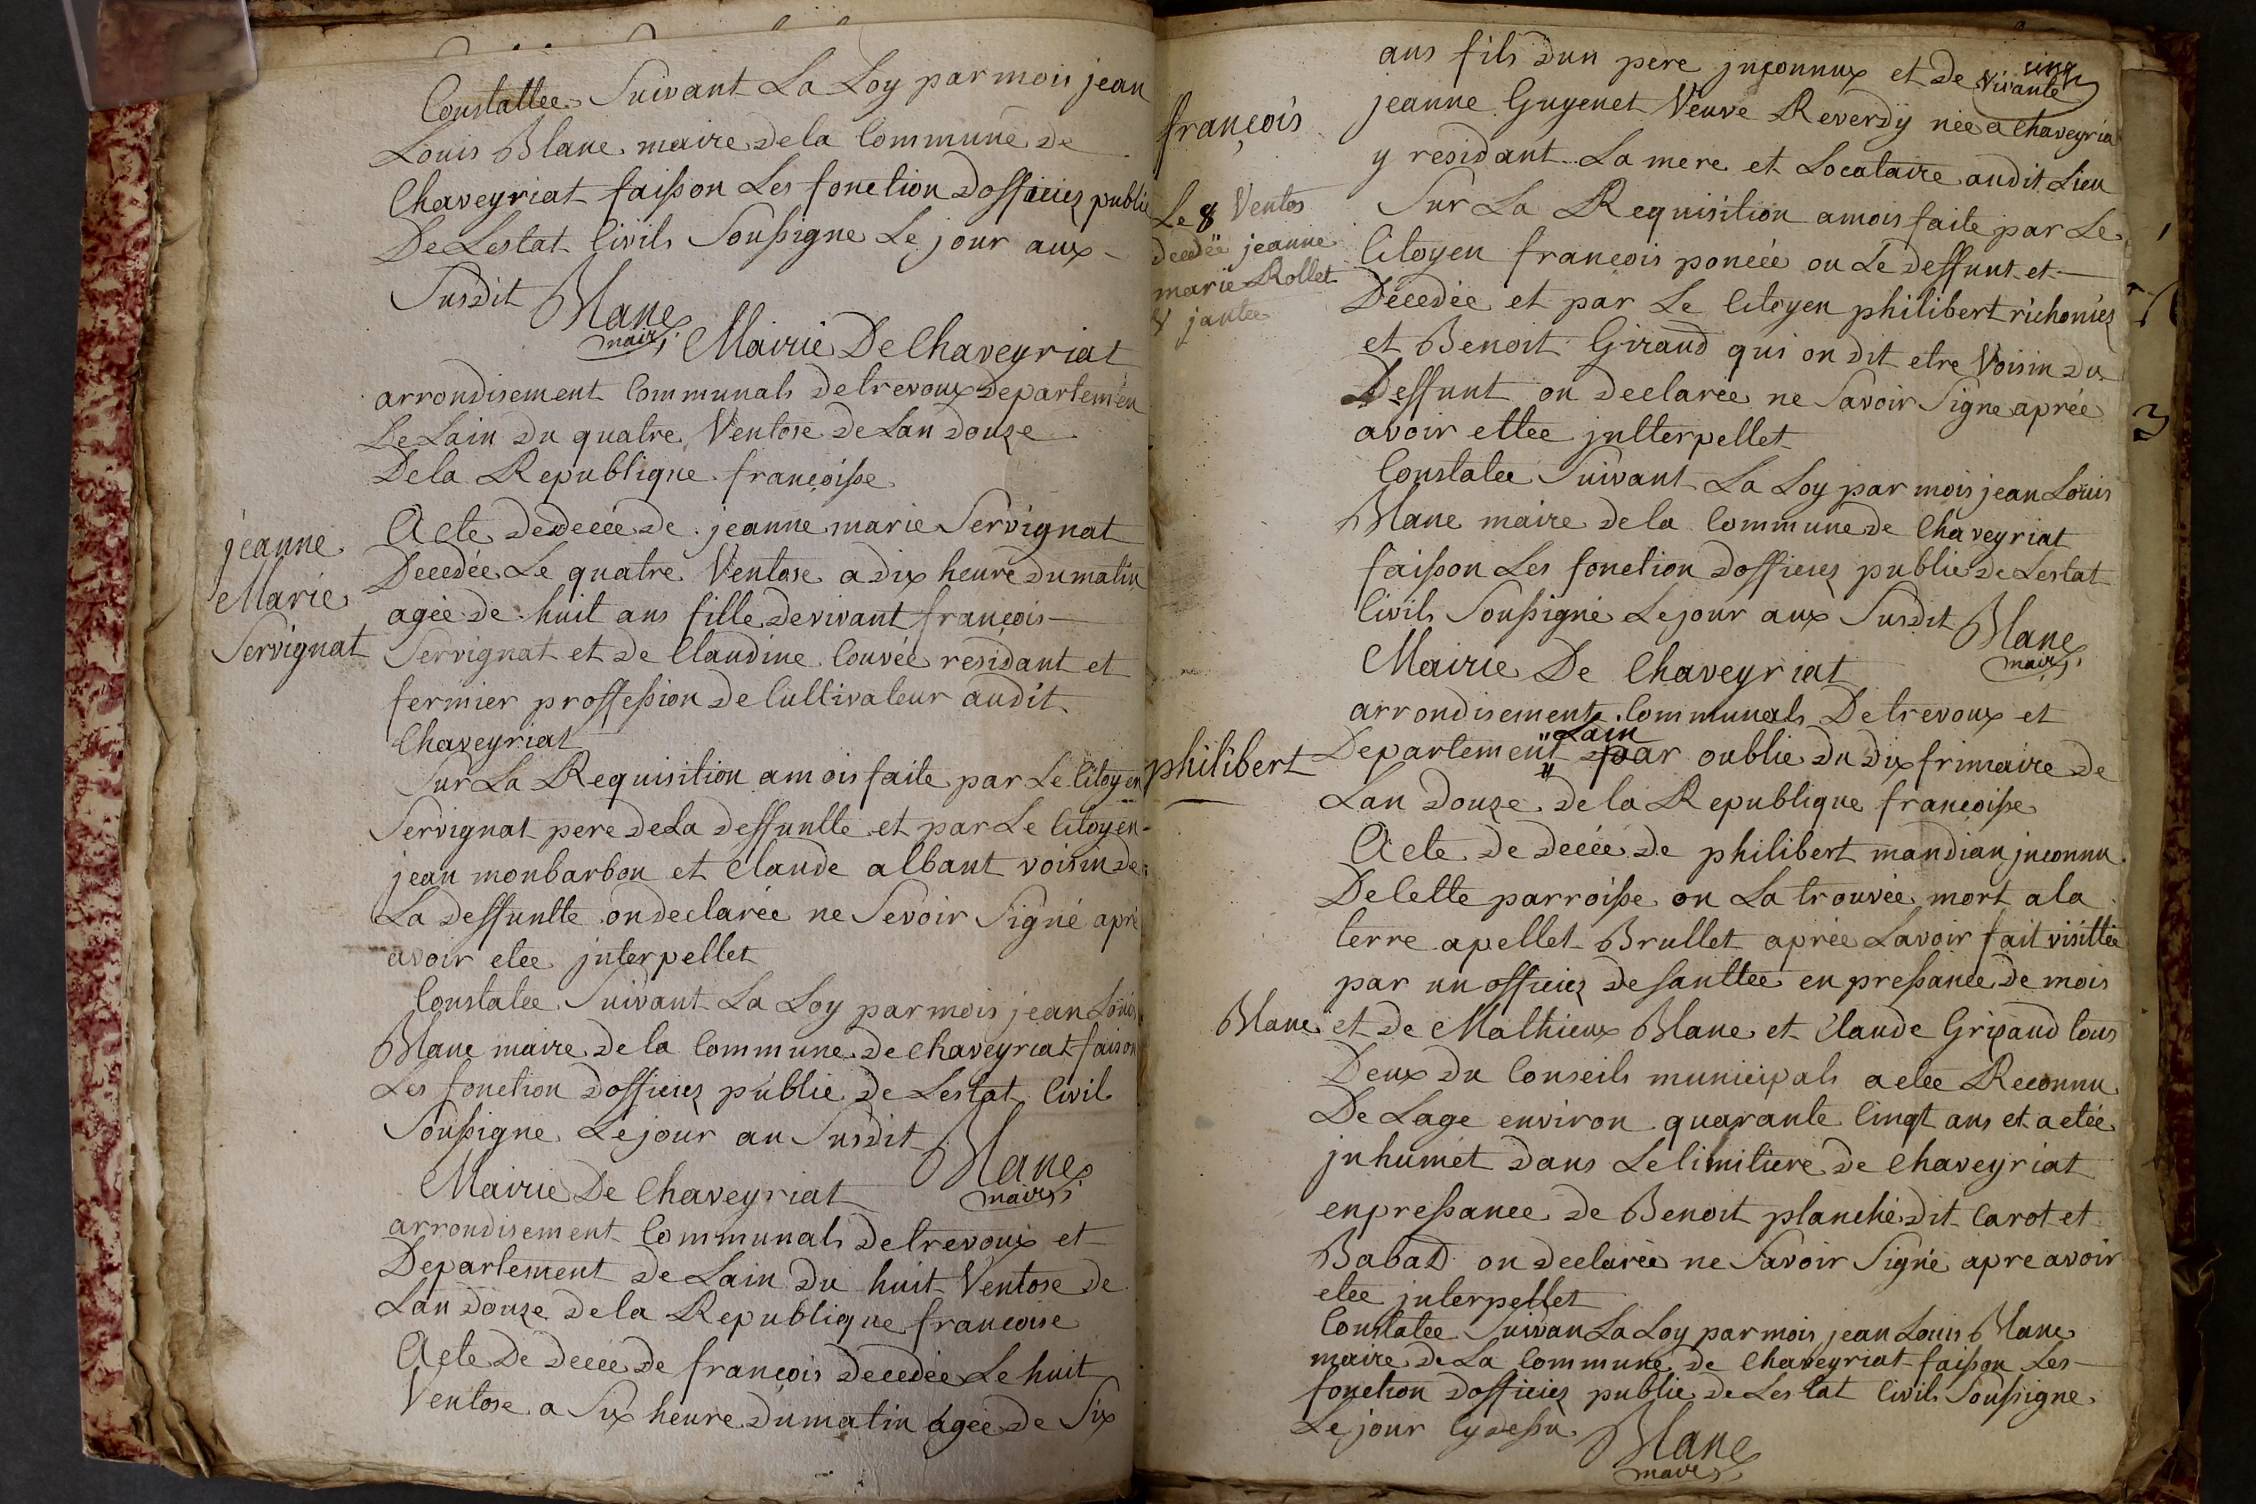 Constattee Suivant La Loy par mois jean
Louis Blanc maire dela Commune de
Chaveyriat faisson Les fonction dofficiez public
De Lestat Civils Soussigne Le jour aux
Susdit Blanc
maire
Mairie De Chaveyriat
arrondisement Communals detrevoux departemen
De Lain du quatre Ventose de Lan douze
Dela Republique françoisse
jeanne
Marie
Servignat
Acte dedecée de jeanne marie Servignat
Decedée Le quatre Ventose a dix heure dumatin
agée de huit ans fille devivant françois
Servignat et de Claudine Couvée residant et
fermier proffession de Cultivateur audit
Chaveyriat
Sur La Requisition amois faite par Le Citoyen
Servignat pere dela deffuntte et par Le Citoyen
jean monbarbon et Claude albant voisin de
La deffuntte on declarée ne Sevoir Signé apré
avoir etee interpellet
Constatee Suivant La Loy par mois jean Louis
Blanc maire dela Commune de Chaveyriat faison
Les fonction dofficiez public de Lestat Civil
Soussigne Lejour au Susdit
Blanc
maire
Mairie De Chaveyriat
arrondisement Communals detrevoux et
Departement de Lain du huit Ventose de
Lan douze dela Republique francoise
Acte De decée de françois decedée Le huit
Ventose a Six heure dumatin agée de Six
françois
Le 8 Ventos
decedëe jeanne
marie Rollet
jantee
ans fils dun pere jnconnux et de vivante
cinq
jeanne Guyenet Veuve Reverdÿ née a Chaveyria
y residant La mere et Locataire audit Lieu
Sur La Requisition amois faite par Le
Citoyen françois poncée ou Le deffunt et
Decedée et par Le Citoyen philibert richoniez
et Benoit Giraud qui on dit etre Voisin du
Deffunt on declarée ne Savoir Signe aprée
avoir ettee jntterpellet
Constatee Suivant La Loy par mois jean Louis
Blanc maire dela Commune de Chaveyriat
faisson Les fonction dofficiez public de Lestat
Civils Soussigné Lejour aux Susdit Blanc
maire
Mairie De Chaveyriat
arrondisement Communals Detrevoux et
Lain
philibert
Departement par oublie du dix frimaire de
Lan douze dela Republique francoisse
Acte de decée de philibert mandian jnconnu
De Cette parroisse on La trouvée mort ala
terre apellet Brullet aprée Lavoir fait visittée
par un officiez de Santtee en pressance de mois
Blanc et de Mathieux Blanc et Claude Giraud tous
Deux du Conseils municipals a etee Reconnu
De Lage environ quarante Cinqt ans et a etée
jnhumét dans Le Cimitiere de Chaveyriat
enpressance de Benoit planché dit Carot et
Babad on declarée ne Savoir Signé apre avoir
etee jnterpellet
Constatee Suivan La Loy par mois jean Louis Blanc
maire de La Commune de Chaveyriat faisson Les
fonction dofficiez public de Lestat Civils Soussigne
Le jour Cy dessu Blanc
maire
3